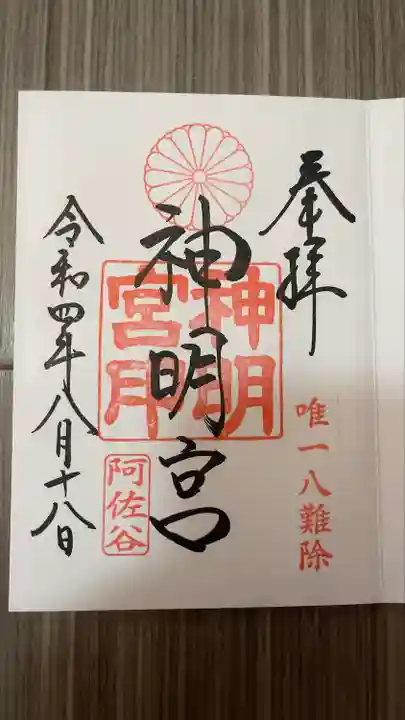 奉拝
唯一八難除
神明宮
神明宮印
阿佐谷
令和四年八月十八日